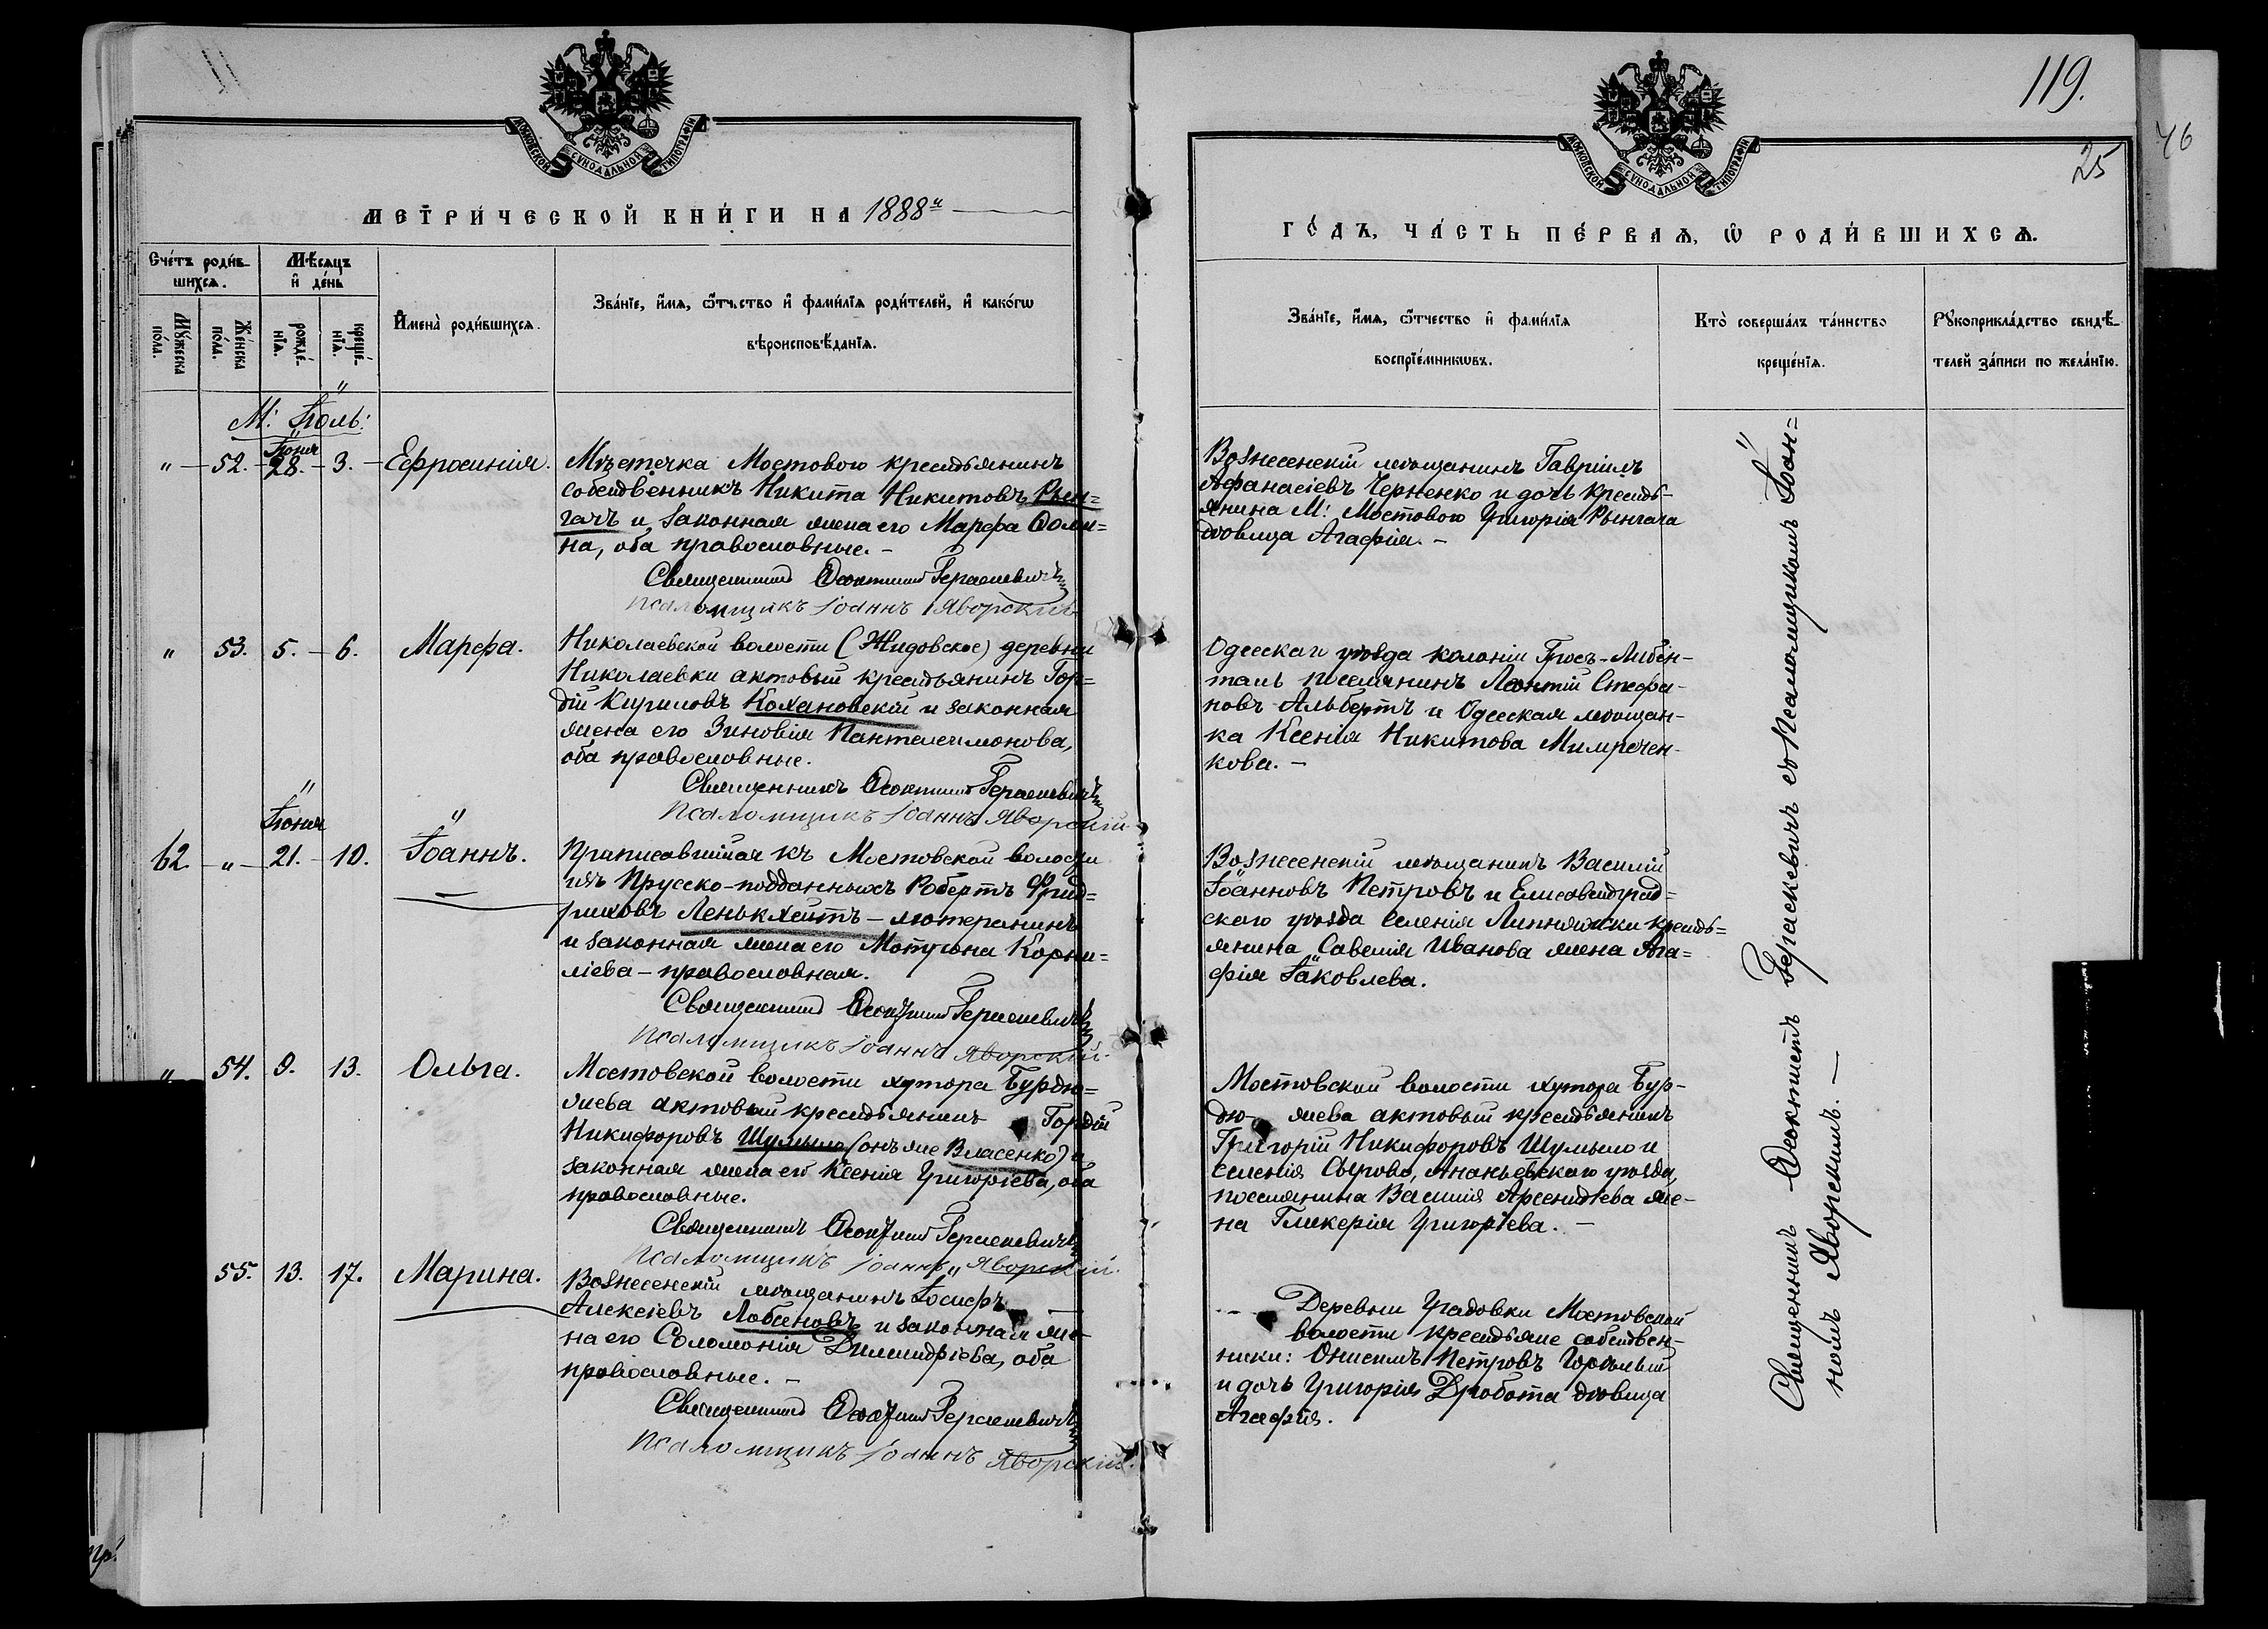 119.
46
25
МОСКОВСКОЙ СѴНОДАЛЬНОЙ ТИПОГРАФІИ
МОСКОВСКОЙ СѴНОДАЛЬНОЙ ТИПОГРАФІИ
МЕТРИ́ЧЕСКОЙ КНИ́ГИ НА 1888й
ГО́ДЪ, ЧА́СТЬ ПЕ́РВАѦ, Ѡ РОДИ́ВШИХСѦ.
Сче́тъ роди́в-
шихсѧ.
Мѣ́сѧцъ
и де́нь
Мꙋ́жеска
по́ла.
Же́нска
по́ла.
рожде́-
нїѧ.
креще́-
нїѧ.
Имена̀ роди́вшихсѧ.
Зва́нїе, и́мѧ, ѻ́тчество и фами́лїѧ роди́телей, и како́гѡ
вѣроисповѣ́данїѧ.
Зва́нїе, и́мѧ, ѻ́тчество и фами́лїѧ
воспрїе́мникѡвъ.
Кто̀ соверша́лъ та́инство
креще́нїѧ.
Рꙋкоприкла́дство свидѣ́-
телей за́писи по жела́нїю.
М: Іюль:
Іюня
" — 52. — 28. — 3. — Ефросинія.
Мѣстечка Мостового крестьянинъ
собственникъ Никита Никитовъ Рын=
гачъ и законная жена его Марфа Ѳоми=
на, оба православные. –
Священникъ Ѳеоктистъ Гераскевичъ
Псаломщикъ Іоаннъ Яворскій
Вознесенскій мѣщанинъ Гавріилъ
Афанасіевъ Черненко и дочь кресть-
янина М: Мостового Григорія Рынгача
дѣвица Агафія. –
" 53. 5. – 6. Марфа.
Николаевской волости (Жидовское) деревни
Николаевки актовый крестьянинъ Гор=
дій Кириловъ Кохановскій и законная
жена его Зиновія Пантелеимонова,
оба православные.
Священникъ Ѳеоктистъ Гераскевичъ
Псаломщикъ Іоаннъ Яворскій
Одесскаго уѣзда колоніи Гросъ-Либен-
таль поселянинъ Леонтій Стефа-
новъ Альбертъ и Одесская мѣщан-
ка Ксенія Никитова
кова. –
Іюня
62 – " – 21. – 10. Іоаннъ.
Приписавшійся къ Мостовской волости
изъ Прусско-подданныхъ Робертъ Фрид=
риховъ Ленькхейтъ – лютеранинъ
и законная жена его Мотрона Корни=
ліева – православная.
Священникъ Ѳеоктистъ Гераскевичъ
Псаломщикъ Іоаннъ Яворскій.
Вознесенскій мѣщанинъ Василій
Іоанновъ Петровъ и Елисаветград=
скаго уѣзда селенія Липняжки кресть=
янина Савелія Иванова жена Ага=
фія Іаковлева.
" 54. 9. 13. Ольга.
Мостовской волости хутора Бурдю=
жиева актовый крестьянинъ Гордій
Никифоровъ Шумыло (онъ же Власенко) и
законная жена его Ксенія Григоріева, оба
православные.
Священникъ Ѳеоктистъ Гераскевичъ
Псаломщикъ Іоаннъ Яворскій.
Мостовской волости хутора Бур-
дю- жиева актовый крестьянинъ
Григорій Никифоровъ Шумыло и
селенія Сырово, Ананьевскаго уѣзда,
поселянина Василія Арсентіева же-
на Гликерія Григоріева. –
55. 13. 17. Марина.
Вознесенскій мѣщанинъ Іосифъ
Алексіевъ Лобановъ и законная же-
на его Соломонія Димитріева, оба
православные. –
Священникъ Ѳеоктистъ Гераскевичъ
Псаломщикъ Іоаннъ Яворскій.
Деревни Градовки Мостовской
волости крестьяне собствен-
ники: Онисимъ Петровъ
и дочь Григорія Дробота дѣвица
Агафія.
Священникъ Ѳеоктистъ Гераскевичъ съ Псаломщикомъ Іоан=
номъ Яворскимъ. –